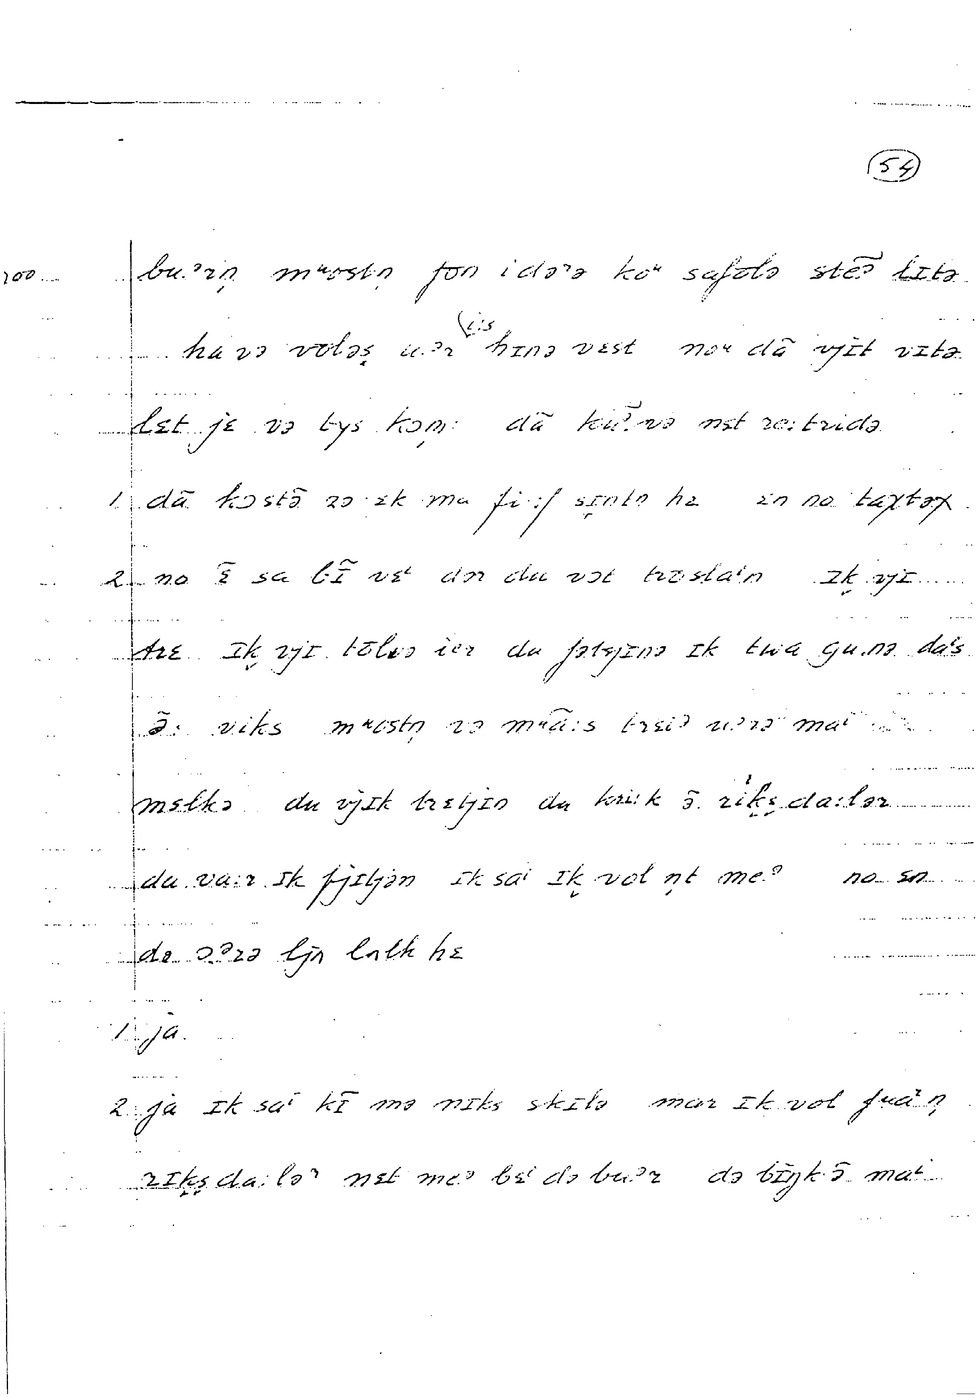 54
200 bu.ᵊrn̩ mʷostn̩ fon idəᵊrə koʳ safølə stẽ.ᵊ lɪtə
ha və voləs̬ u.ᵊr i:s hɪnə vɛst noʳ dã vjɪt vɪtə
lɛt jɛ və tys kəm̩: dã kũ.ᵊnə nɛt re:tridə
1 dã kɔstə̃ zə ɛk mu fi:f sɪntn hɛ ɛn no taχtəχ
2 no ɛ̃ sa bĩ vɛⁱ dər du vɔt trøslaⁱn ɪk̬ vjɪ
trɛ ɪk̬ vjɪ tølvə iər du fətsjɪnə ɪk twa gu.nə daⁱs
ə̃: viks mʷostn̩ və mʷã:s trɛiə u.ᵊrə maⁱ
mɛlkə du vjɪk trɛtjɪn du kri:k ə̃ riks̬da:lər
du va:r ɪk fjɪtjən ik saⁱ ɪk̬ vol n̩t me.ᵊ no ɛn
də ɔ.ᵊrə ljʌ lʌlk hɛ
1 ja.
2 ja ɪk saⁱ kĩ mə niks skɪlə mar ɪk vol fuaⁱn̩
rɪks̬da:ləᵊ nɛt me.ᵊ bɛⁱ də bu.ᵊr də tĩŋk ə̃ maⁱ